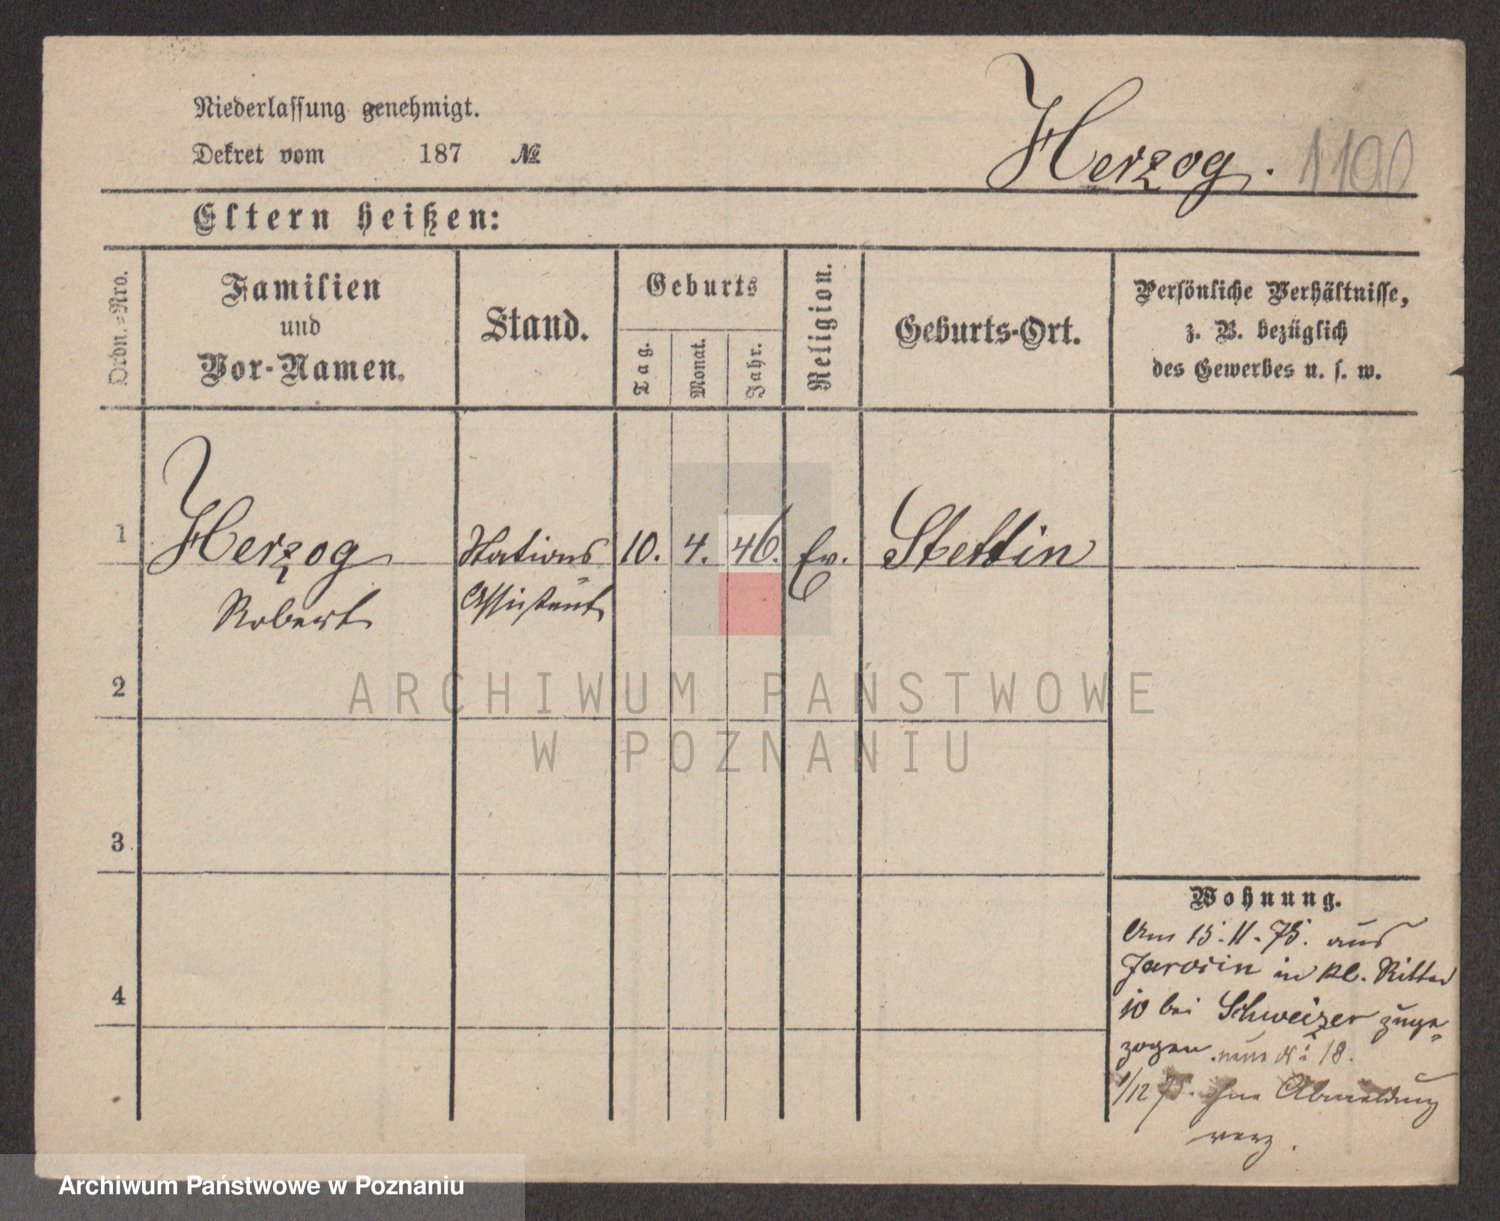 Niederlassung genehmigt.
Dekret vom 187 №
Herzog. 1100
Eltern heißen:
Ordn.-Nro.
Familien
und
Vor-Namen.
Stand.
Geburts
Tag.
Monat.
Jahr.
Religion.
Geburts-Ort.
Persönliche Verhältnisse,
z. B. bezüglich
des Gewerbes u. s. w.
1
Herzog Stations 10. 4. 46. Ev. Stettin
Robert Assistent
2
3
4
Wohnung.
Am 15.11.75. aus
Jarocin in kl. Ritter
10 bei Schweizer zuge-
zogen. 18.
1/12 75. ohne Abmeldung
verz.
ARCHIWUM PAŃSTWOWE
W POZNANIU
Archiwum Państwowe w Poznaniu